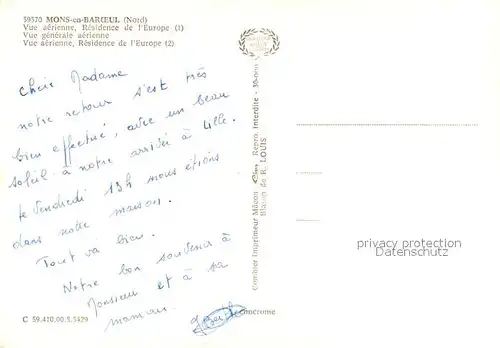 59370 MONS-en-BARŒUL (Nord)
Vue aérienne, Résidence de l'Europe (1)
Vue générale aérienne
Vue aérienne, Résidence de l'Europe (2)
Chère Madame
notre retour s'est très
bien effectué, avec un beau
soleil à notre arrivée à Lille.
le vendredi 13h nous étions
dans notre maison.
Tout va bien.
Notre bon souvenir à
Monsieur et à sa
maman.
C 59.410.00.5.1429
Combier Imprimeur Mâcon Repro. Interdite
Blason de R. LOUIS
privacy protection
Datenschutz